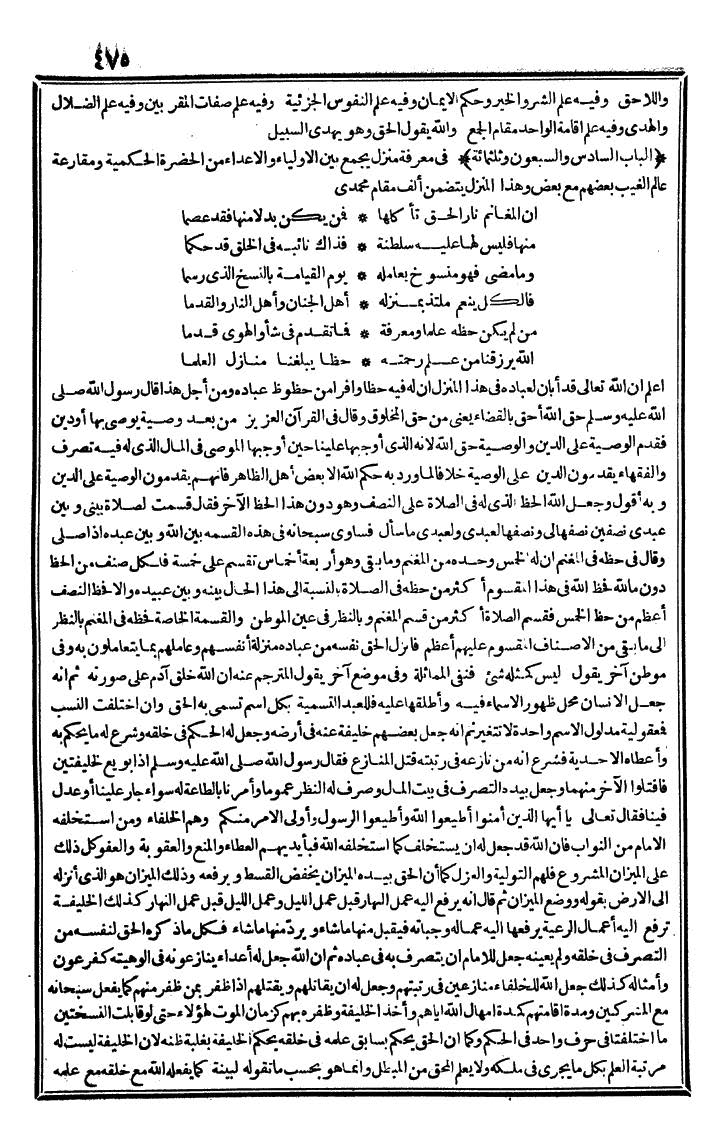 ٤٧٥
واللاحق وفيه علم الشر والخير وحكم الايمان وفيه علم النفوس الجزئية وفيه علم صفات المقربين وفيه علم الضلال
والهدى وفيه علم اقامة الواحد مقام الجمع والله يقول الحق وهو يهدى السبيل
﴿الباب السادس والسبعون وثلثمائة﴾ فى معرفة منزل يجمع بين الاولياء والاعداء من الحضرة الحكمية ومقارعة
عالم الغيب بعضهم مع بعض وهذا المنزل يتضمن ألف مقام محمدى
ان المغانم نار الحق تأكلها * فمن يكن بدلا منها فقد عصما
منها فليس لها عليه سلطنة * فذاك نائبه فى الخلق قد حكما
وما مضى فهو منسوخ بعامله * يوم القيامة بالنسخ الذى رسما
فالكل ينعم ملتذ بمنزله * أهل الجنان وأهل النار والقدما
من لم يكن حظه علما ومعرفة * فما تقدم فى شأو الهوى قدما
الله يرزقنا من علم رحمته * حظا يبلغنا منازل العلما
اعلم ان الله تعالى قد أبان لعباده فى هذا المنزل ان له فيه حظا وافرا من حظوظ عباده ومن أجل هذا قال رسول الله صلى
الله عليه وسلم حق الله أحق بالقضاء يعنى من حق المخلوق وقال فى القرآن العزيز من بعد وصية يوصى بها أودين
فقدم الوصية على الدين والوصية حق الله لانه الذى أوجبها علينا حين أوجبها الموصى فى المال الذى له فيه تصرف
والفقهاء يقدمون الدين على الوصية خلافا لما ورد به حكم الله الا بعض أهل الظاهر فانهم يقدمون الوصية على الدين
وبه أقول وجعل الله الحظ الذى له فى الصلاة على النصف وهو دون هذا الحظ الآخر فقال قسمت لصلاة بينى وبين
عبدى نصفين نصفها لى ونصفها لعبدى ولعبدى ما سأل فساوى سبحانه فى هذه القسمه بين الله وبين عبده اذا صلى
وقال فى حظه فى المغنم ان له الخمس وحده من المغنم وما بقى وهو أربعة أخماس تقسم على خمسة فلكل صنف من الحظ
دون ما لله فحظ الله فى هذا المقسوم أكثر من حظه فى الصلاة بالنسبة الى هذا الحال بينه وبين عبيده والا فحظ النصف
أعظم من حظ الخمس فقسم الصلاة أكثر من قسم المغنم وبالنظر فى عين الموطن والقسمة الخاصة فحظه فى المغنم بالنظر
الى ما بقى من الاصناف المقسوم عليهم أعظم فانزل الحق نفسه من عباده منزلة أنفسهم وعاملهم بما يتعاملون به وفى
موطن آخر يقول ليس كمثله شئ فنفى المماثلة وفى موضع آخر يقول المترجم عنه ان الله خلق آدم على صورته ثم انه
جعل الانسان محل ظهور الاسماء فيه وأطلقها عليه فللعبد التسمية بكل اسم تسمى به الحق وان اختلفت النسب
فعقولية مدلول الاسم واحدة لا تتغير ثم انه جعل بعضهم خليفة عنه فى أرضه وجعل له الحكم فى خلقه وشرع له ما يحكم به
وأعطاه الاحدية فشرع انه من نازعه فى رتبته قتل المنازع فقال رسول الله صلى الله عليه وسلم اذا بويع لخليفتين
فاقتلوا الآخر منهما وجعل بيده التصرف فى بيت المال وصرف له النظر عموما وأمرنا بالطاعة له سواء جار علينا أوعدل
فينا فقال تعالى يا أيها الذين آمنوا أطيعوا الله وأطيعوا الرسول وأولى الامر منكم وهم الخلفاء ومن استخلفه
الامام من النواب فان الله قد جعل له ان يستخلف كما استخلفه الله فبأيديهم العطاء والمنع والعقوبة والعفو كل ذلك
على الميزان المشروع فلهم التولية والعزل كما أن الحق بيده الميزان يخفض القسط ويرفعه وذلك الميزان هو الذى أنزله
الى الارض بقوله ووضع الميزان ثم قال انه يرفع اليه عمل النهار قبل عمل الليل وعمل الليل قبل عمل النهار كذلك الخليفة
ترفع اليه أعمال الرعية يرفعها اليه عماله وجباته فيقبل منها ماشاء ويرد منها ماشاء فكل ما ذكره الحق لنفسه من
التصرف فى خلقه ولم يعينه جعل للامام ان يتصرف به فى عباده ثم ان الله جعل له أعداء ينازعونه فى الوهيته كفرعون
وأمثاله كذلك جعل الله للخلفاء منازعين فى رتبتهم وجعل له ان يقاتلهم ويقتلهم اذا ظفر بمن ظفر منهم كما يفعل سبحانه
مع المشركين ومدة اقامتهم كمدة امهال الله اياهم وأخذ الخليفة وظفره بهم كزمان الموت لهؤلاء حتى لو قابلت النسختين
ما اختلفتا فى حرف واحد فى الحكم وكما ان الحق يحكم بسابق علمه فى خلقه يحكم الخليفة بغلبة ظنه لان الخليفة ليست له
مرتبة العلم بكل ما يجرى فى ملكه ولا يعلم المحق من المبطل وانما هو بحسب ما تقوله لبينة كما يفعله الله مع خلقه مع علمه